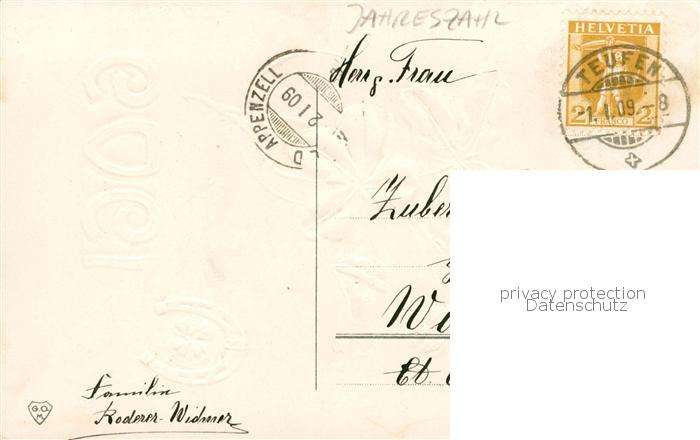 JAHRESZAHL
HELVETIA
TEUFEN
-1.1.09.-8
2 2
FRANCO
APPENZELL
2 I 09
Herrn Frau
1909
Zuber
privacy protection
Datenschutz
Familie
Roderer-Widmer
G.O.
M.